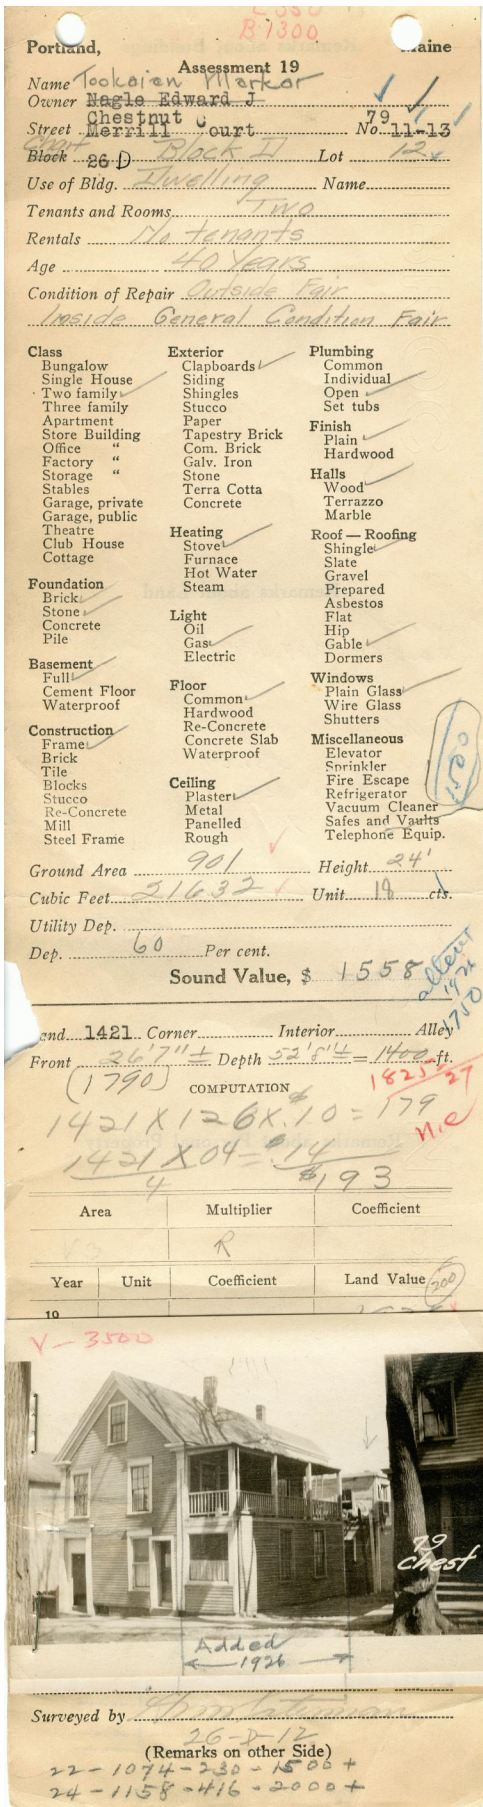 B 1300
Portland, Maine
Assessment 19
Name Tookaian Markar
Owner Nagle Edward J
Chestnut 79
Street Merrill Court No. 11-13
Chart
Block 26 D Block D Lot 12
Use of Bldg. Dwelling Name
Tenants and Rooms Two
Rentals No tenants
Age 40 Years
Condition of Repair Outside Fair
Inside General Condition Fair
Class
Bungalow
Single House
Two family
Three family
Apartment
Store Building
Office "
Factory "
Storage "
Stables
Garage, private
Garage, public
Theatre
Club House
Cottage
Foundation
Brick
Stone
Concrete
Pile
Basement
Full
Cement Floor
Waterproof
Construction
Frame
Brick
Tile
Blocks
Stucco
Re-Concrete
Mill
Steel Frame
Exterior
Clapboards
Siding
Shingles
Stucco
Paper
Tapestry Brick
Com. Brick
Galv. Iron
Stone
Terra Cotta
Concrete
Heating
Stove
Furnace
Hot Water
Steam
Light
Oil
Gas
Electric
Floor
Common
Hardwood
Re-Concrete
Concrete Slab
Waterproof
Ceiling
Plaster
Metal
Panelled
Rough
Plumbing
Common
Individual
Open
Set tubs
Finish
Plain
Hardwood
Halls
Wood
Terrazzo
Marble
Roof — Roofing
Shingle
Slate
Gravel
Prepared
Asbestos
Flat
Hip
Gable
Dormers
Windows
Plain Glass
Wire Glass
Shutters
Miscellaneous
Elevator
Sprinkler
Fire Escape
Refrigerator
Vacuum Cleaner
Safes and Vaults
Telephone Equip.
Ground Area 901 Height 24'
Cubic Feet 21632 Unit 18 cts.
Utility Dep.
Dep. 60 Per cent.
Sound Value, $ 1558
1926
1750
Land 1421 Corner Interior Alley
Front 26'7"± Depth 52'8"± = 1400 ft.
(1790) COMPUTATION 1825-27
1421 X 126 X $.10 = 179
1421 X 04 = $.14
4 $193
Area Multiplier Coefficient
R
Year Unit Coefficient Land Value 200
19
V - 3500
79
Chest
Added
1926
Surveyed by
26-D-12
(Remarks on other Side)
22-1074-230-1500+
24-1158-416-2000+